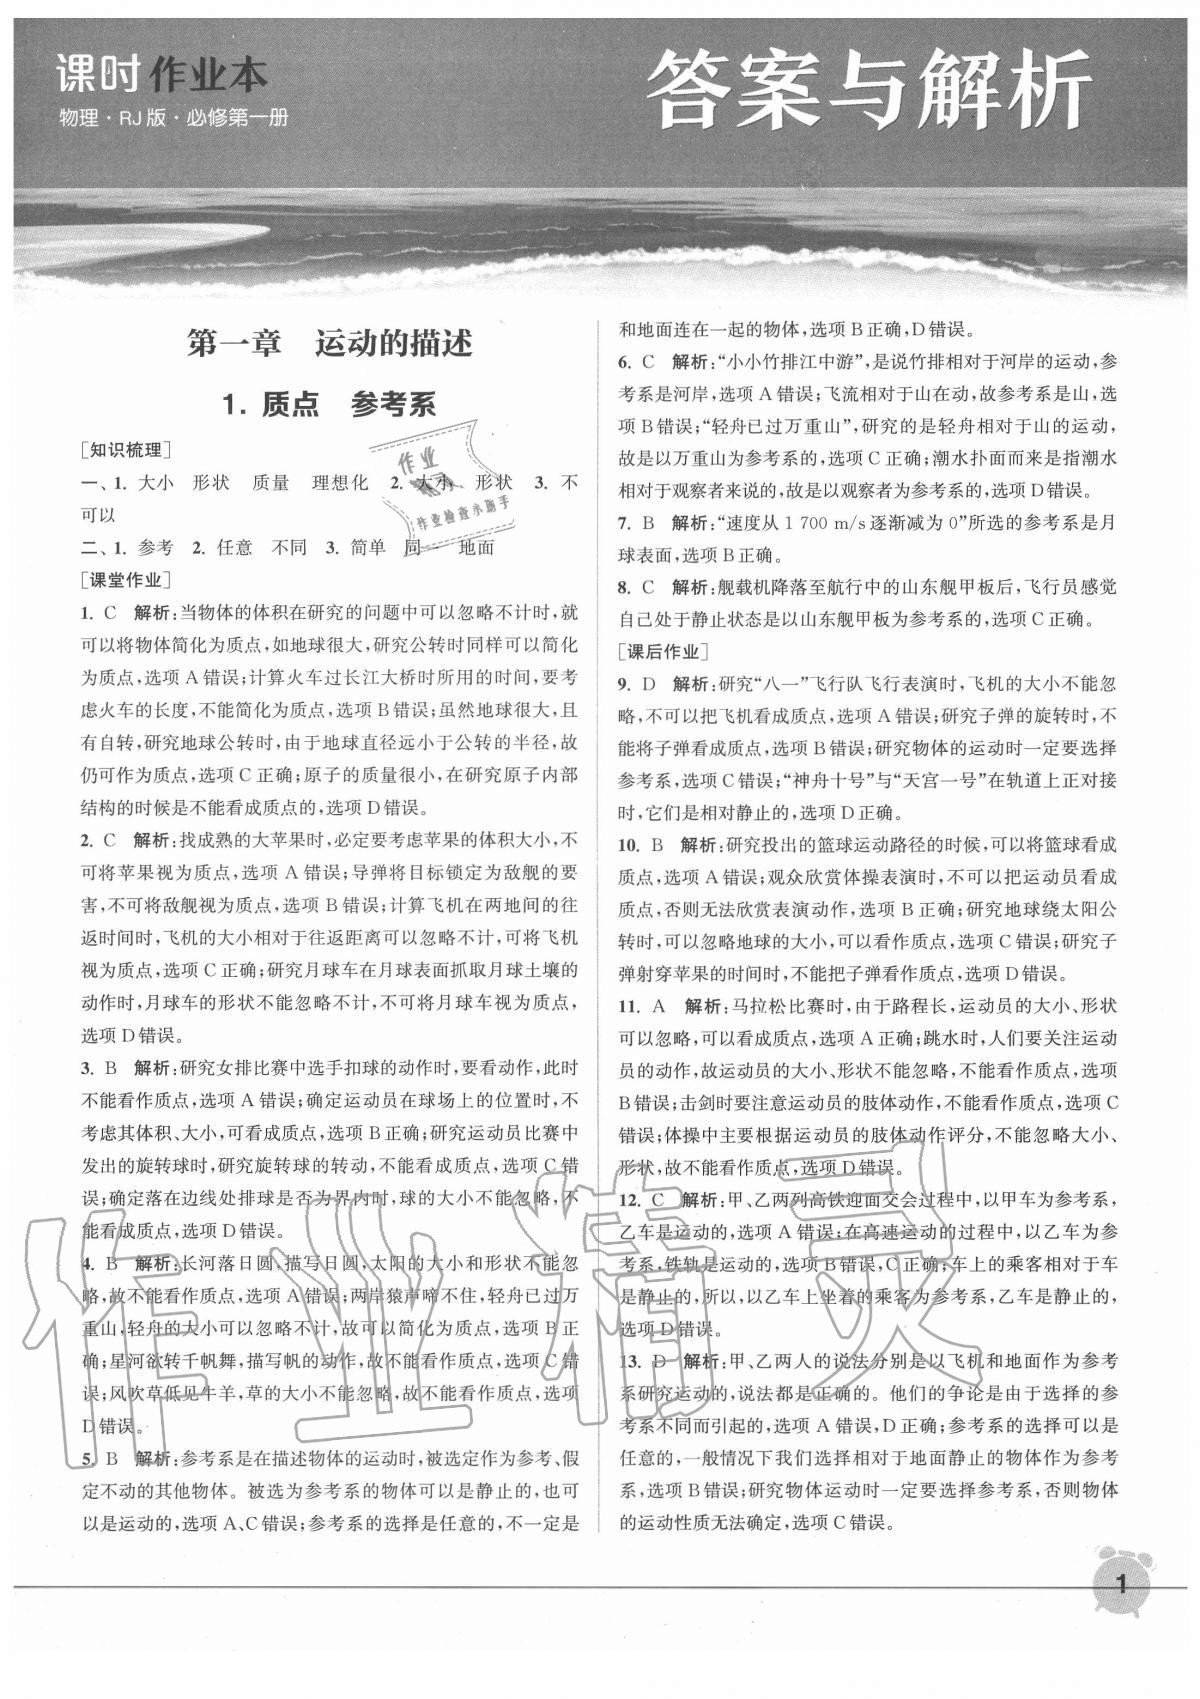 课时作业本
物理·RJ版·必修第一册
答案与解析
第一章 运动的描述
1. 质点 参考系
[知识梳理]
一、1. 大小 形状 质量 理想化 2. 大小 形状 3. 不
可以
二、1. 参考 2. 任意 不同 3. 简单 同一 地面
[课堂作业]
1. C 解析:当物体的体积在研究的问题中可以忽略不计时,就
可以将物体简化为质点,如地球很大,研究公转时同样可以简化
为质点,选项A错误;计算火车过长江大桥时所用的时间,要考
虑火车的长度,不能简化为质点,选项B错误;虽然地球很大,且
有自转,研究地球公转时,由于地球直径远小于公转的半径,故
仍可作为质点,选项C正确;原子的质量很小,在研究原子内部
结构的时候是不能看成质点的,选项D错误。
2. C 解析:找成熟的大苹果时,必定要考虑苹果的体积大小,不
可将苹果视为质点,选项A错误;导弹将目标锁定为敌舰的要
害,不可将敌舰视为质点,选项B错误;计算飞机在两地间的往
返时间时,飞机的大小相对于往返距离可以忽略不计,可将飞机
视为质点,选项C正确;研究月球车在月球表面抓取月球土壤的
动作时,月球车的形状不能忽略不计,不可将月球车视为质点,
选项D错误。
3. B 解析:研究女排比赛中选手扣球的动作时,要看动作,此时
不能看作质点,选项A错误;确定运动员在球场上的位置时,不
考虑其体积、大小,可看成质点,选项B正确;研究运动员比赛中
发出的旋转球时,研究旋转球的转动,不能看成质点,选项C错
误;确定落在边线处排球是否为界内时,球的大小不能忽略,不
能看成质点,选项D错误。
4. B 解析:长河落日圆,描写日圆,太阳的大小和形状不能忽
略,故不能看作质点,选项A错误;两岸猿声啼不住,轻舟已过万
重山,轻舟的大小可以忽略不计,故可以简化为质点,选项B正
确;星河欲转千帆舞,描写帆的动作,故不能看作质点,选项C错
误;风吹草低见牛羊,草的大小不能忽略,故不能看作质点,选项
D错误。
5. B 解析:参考系是在描述物体的运动时,被选定作为参考、假
定不动的其他物体。被选为参考系的物体可以是静止的,也可
以是运动的,选项A、C错误;参考系的选择是任意的,不一定是
和地面连在一起的物体,选项B正确,D错误。
6. C 解析:“小小竹排江中游”,是说竹排相对于河岸的运动,参
考系是河岸,选项A错误;飞流相对于山在动,故参考系是山,选
项B错误;“轻舟已过万重山”,研究的是轻舟相对于山的运动,
故是以万重山为参考系的,选项C正确;潮水扑面而来是指潮水
相对于观察者来说的,故是以观察者为参考系的,选项D错误。
7. B 解析:“速度从1 700 m/s逐渐减为0”所选的参考系是月
球表面,选项B正确。
8. C 解析:舰载机降落至航行中的山东舰甲板后,飞行员感觉
自己处于静止状态是以山东舰甲板为参考系的,选项C正确。
[课后作业]
9. D 解析:研究“八一”飞行队飞行表演时,飞机的大小不能忽
略,不可以把飞机看成质点,选项A错误;研究子弹的旋转时,不
能将子弹看成质点,选项B错误;研究物体的运动时一定要选择
参考系,选项C错误;“神舟十号”与“天宫一号”在轨道上正对接
时,它们是相对静止的,选项D正确。
10. B 解析:研究投出的篮球运动路径的时候,可以将篮球看成
质点,选项A错误;观众欣赏体操表演时,不可以把运动员看成
质点,否则无法欣赏表演动作,选项B正确;研究地球绕太阳公
转时,可以忽略地球的大小,可以看作质点,选项C错误;研究子
弹射穿苹果的时间时,不能把子弹看作质点,选项D错误。
11. A 解析:马拉松比赛时,由于路程长,运动员的大小、形状
可以忽略,可以看成质点,选项A正确;跳水时,人们要关注运动
员的动作,故运动员的大小、形状不能忽略,不能看作质点,选项
B错误;击剑时要注意运动员的肢体动作,不能看作质点,选项C
错误;体操中主要根据运动员的肢体动作评分,不能忽略大小、
形状,故不能看作质点,选项D错误。
12. C 解析:甲、乙两列高铁迎面交会过程中,以甲车为参考系,
乙车是运动的,选项A错误;在高速运动的过程中,以乙车为参
考系,铁轨是运动的,选项B错误,C正确;车上的乘客相对于车
是静止的,所以,以乙车上坐着的乘客为参考系,乙车是静止的,
选项D错误。
13. D 解析:甲、乙两人的说法分别是以飞机和地面作为参考
系研究运动的,说法都是正确的。他们的争论是由于选择的参
考系不同而引起的,选项A错误,D正确;参考系的选择可以是
任意的,一般情况下我们选择相对于地面静止的物体作为参考
系,选项B错误;研究物体运动时一定要选择参考系,否则物体
的运动性质无法确定,选项C错误。
作业
作业检查小助手
作业精灵
1